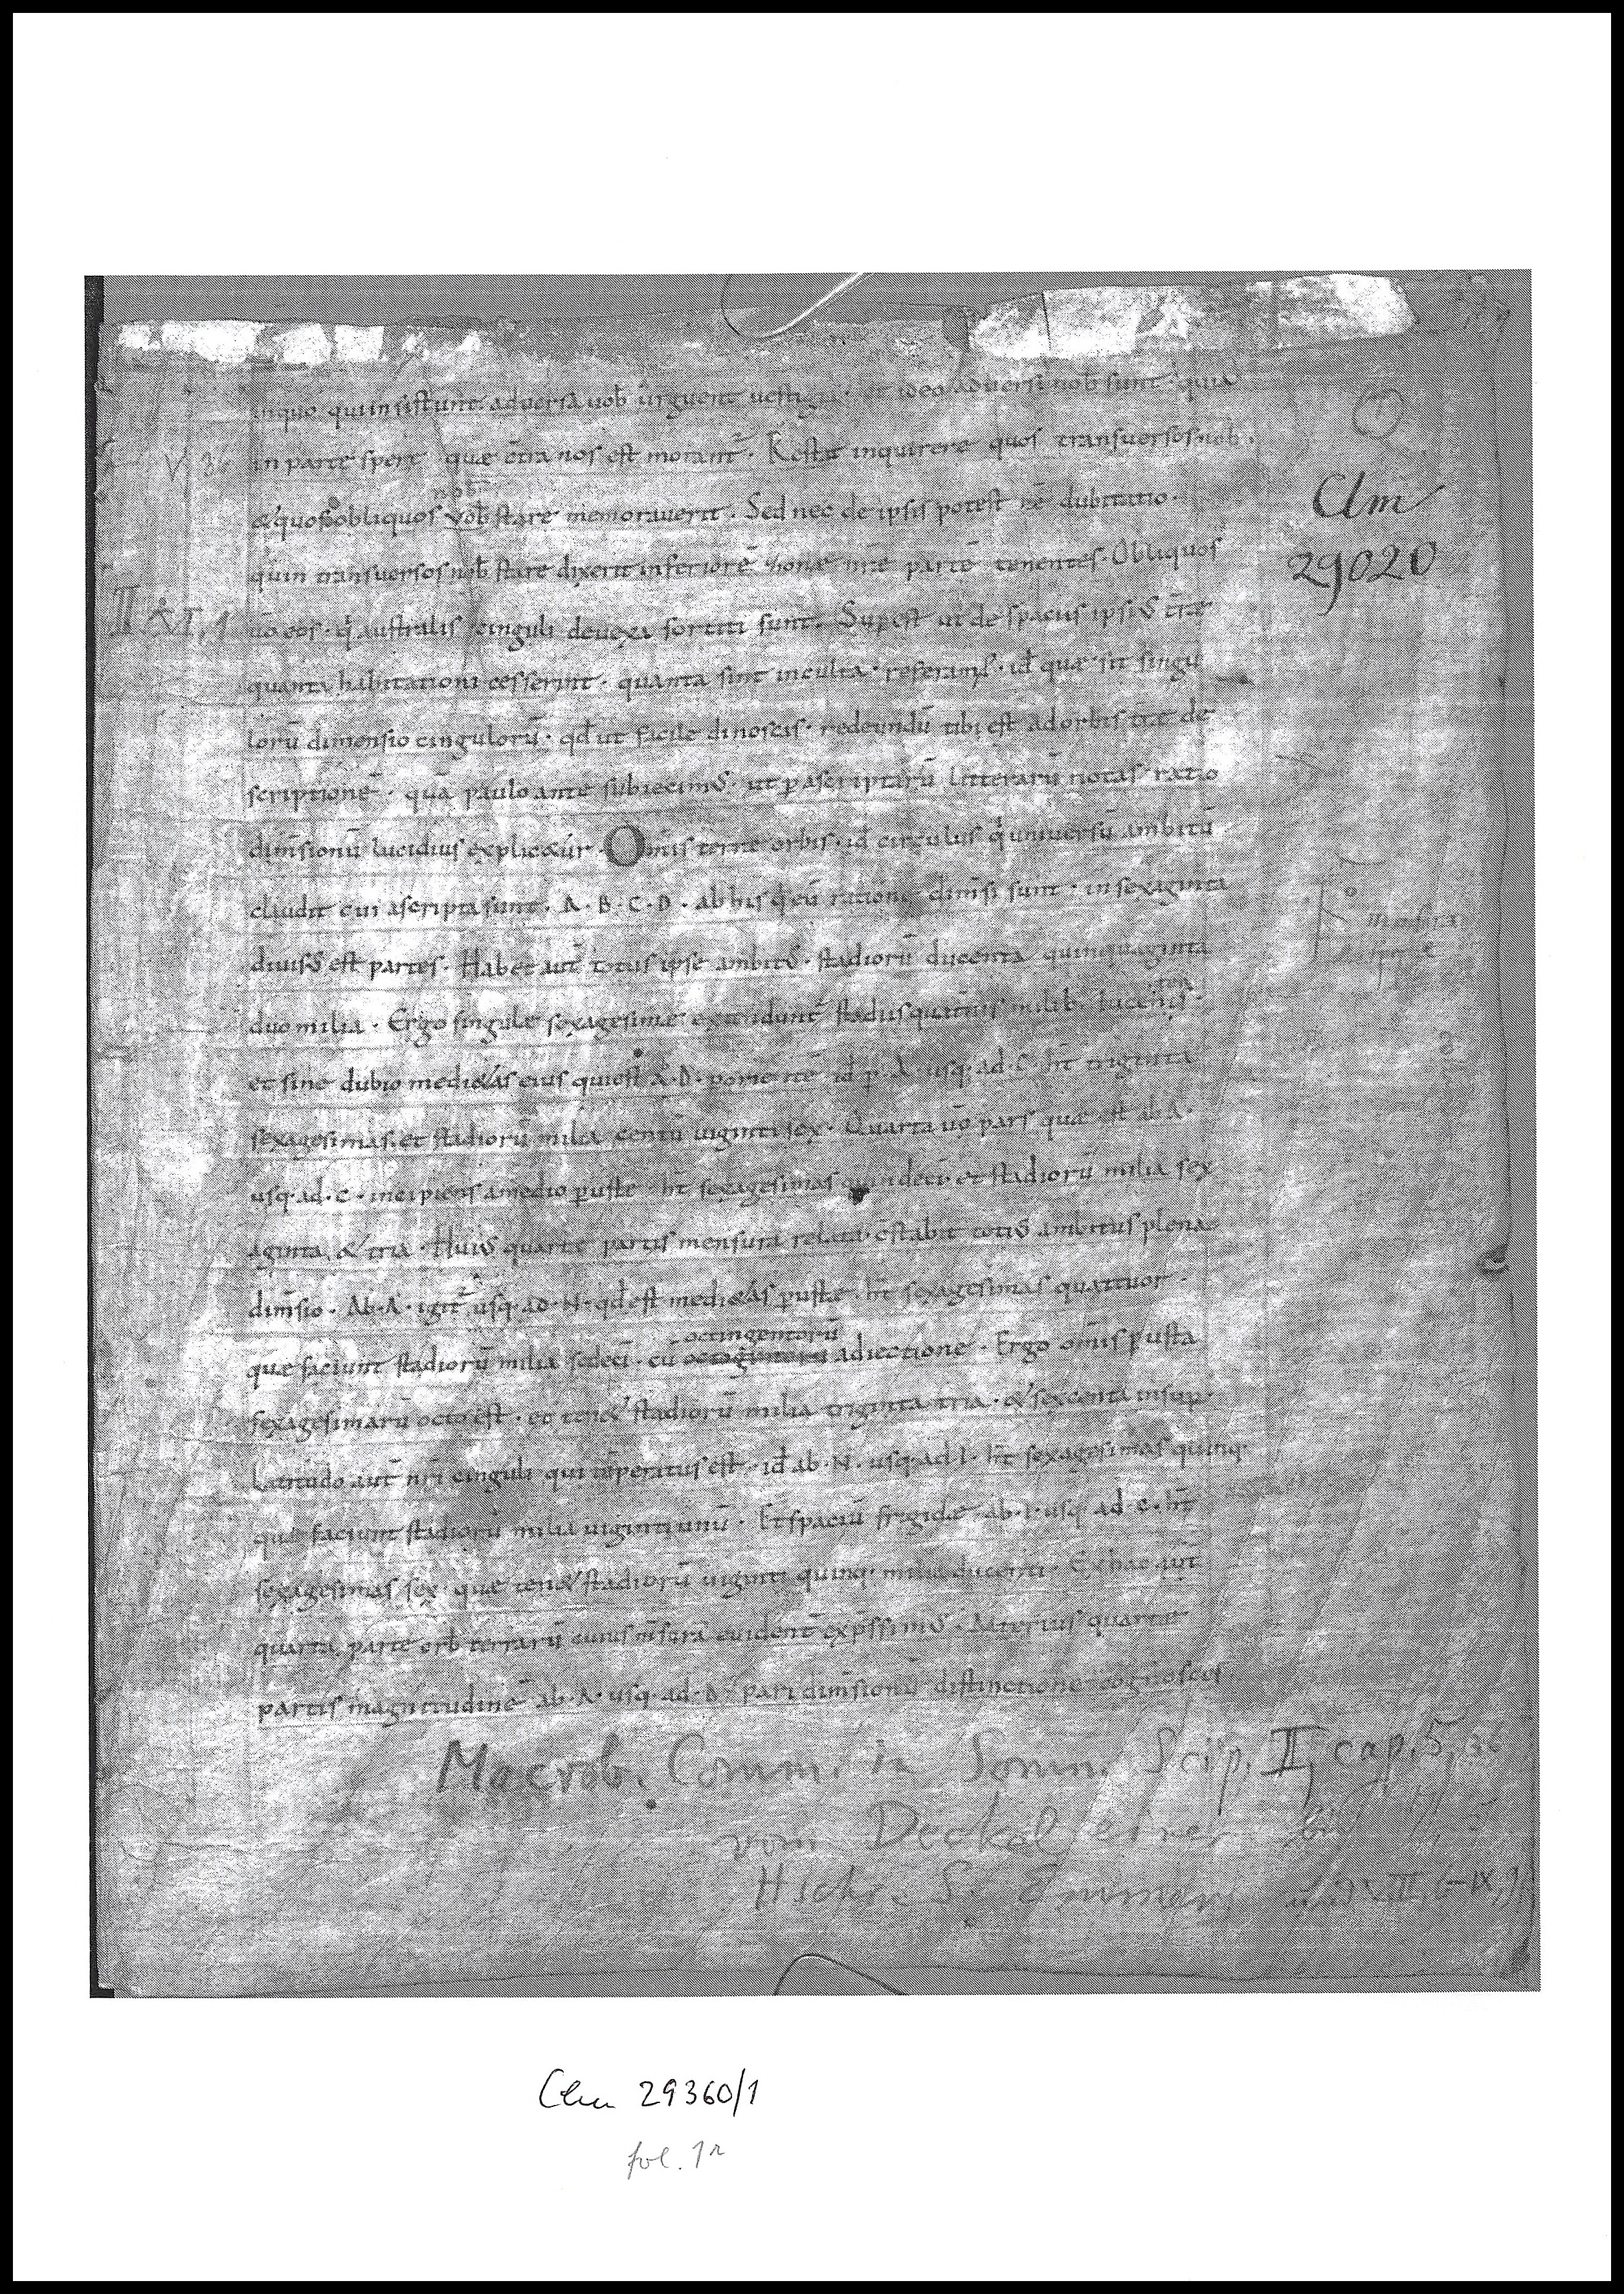 inquo qui insistunt. aduersa uob urguent uestigia. et ideo aduersi uob sunt. quia
V 36 in parte sperę quę ct̄ra nos est morant². Restat inquirere quos transuersos nob.
nob
&quos obliquos vob stare memorauerit. Sed nec de ipsis potest eē dubitatio.
quin transuersos nob stare dixerit inferiorē zonae nr̄e partē tenentes. Obliquos
II VI, 1 uō eos. q australis cinguli deuexa sortiti sunt. Supest ut de spaciis ipsiS t̄rę
quanta habitationi cesserint. quanta sint inculta. referam. id quae sit singu
lorū dimensio cingulorū. qd ut facile dinoscis. redeundū tibi est ad orbis t̄rę de
scriptionē. quā paulo ante subiecimS. ut p ascriptarū litterarū notas ratio
dim̄sionū lucidius explic&ur. Om̄is terrę orbis. id circulus q uniuersū ambitū
claudit cui ascripta sunt. A. B. C. D. ab his q eū ratione dim̄si sunt. in sexaginta
diuisS est partes. Habet aut̄ totus ipse ambitS. stadiorū ducenta quinquaginta
duo milia. Ergo singulę sexagesimę extendunt̄ stadiis quat̄nis milib ducenis.
et sine dubio medi&as eius qui est A. D. p id p. A. usq. ad. C. ht̄ triginta
sexagesimas. et stadiorū milia centū uiginti sex. Quarta uō pars quę est ab A.
usq. ad. C. incipiens a medio pustę ht̄ sexagesimas quindecī. et stadiorū milia sex
aginta & tria. HuiS quartę partis mensura relata. c̄stabit totiS ambitus plena
dim̄sio. Ab. A. igit² usq. ad. N. qd est medi&as pustę. ht̄ sexagesimas quattuor.
octingentorū
quę faciunt stadiorū milia sedecī. cū adiectione. Ergo om̄is pusta
sexagesimarū octo est. et ten& stadiorū milia triginta tria. & sexcenta insup.
Latitudo aut̄ nr̄i cinguli qui t̄peratus est. id ab. N. usq. ad. I. ht̄ sexagesimas quinq.
quę faciunt stadiorū milia uiginti unū. Et spaciū frigidę ab. I. usq. ad. C. ht̄
sexagesimas sex quę ten& stadiorū uiginti quinq. milia ducenti. Ex hac aut̄
quarta parte orb terrarū cuius m̄surā euident̄ exp̄ssimS. Alterius quartę
partis magnitudinē ab. A. usq. ad. D. pari dim̄sionū distinctione cognosces
Clm
29020
Macrob. Comm. in Somn. Scip. II, cap. 5, 36
vom Deckel einer
Hschr. S. Emmeram
Clm 29360/1
fol. 1r